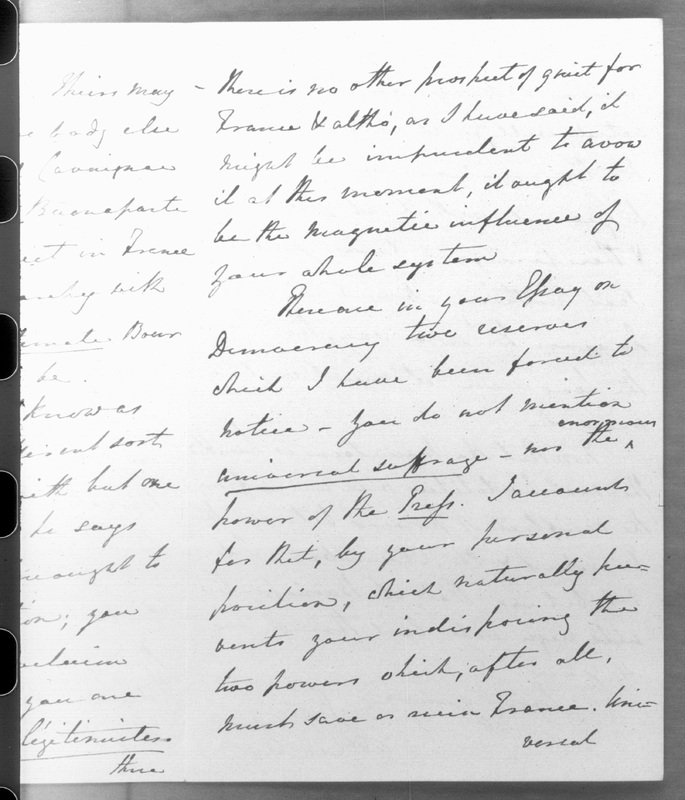 Thiers may
body else
Cavaignac
Buonaparte
in France
with
Bour
be.
know as
sorts
with but one
he says
ought to
you
you are
légitimistes
there
– there is no other prospect of quiet for
France & altho', as I have said, it
might be imprudent to avow
it at this moment, it ought to
be the magnetic influence of
your whole system
There are in your Essay on
Democracy two reserves
which I have been forced to
notice – you do not mention
universal suffrage – nor the ^ enormous
power of the Press. I account
for that, by your personal
position, which naturally pre-
vents your indisposing the
two powers which, after all,
must save or ruin France. Uni-
versal